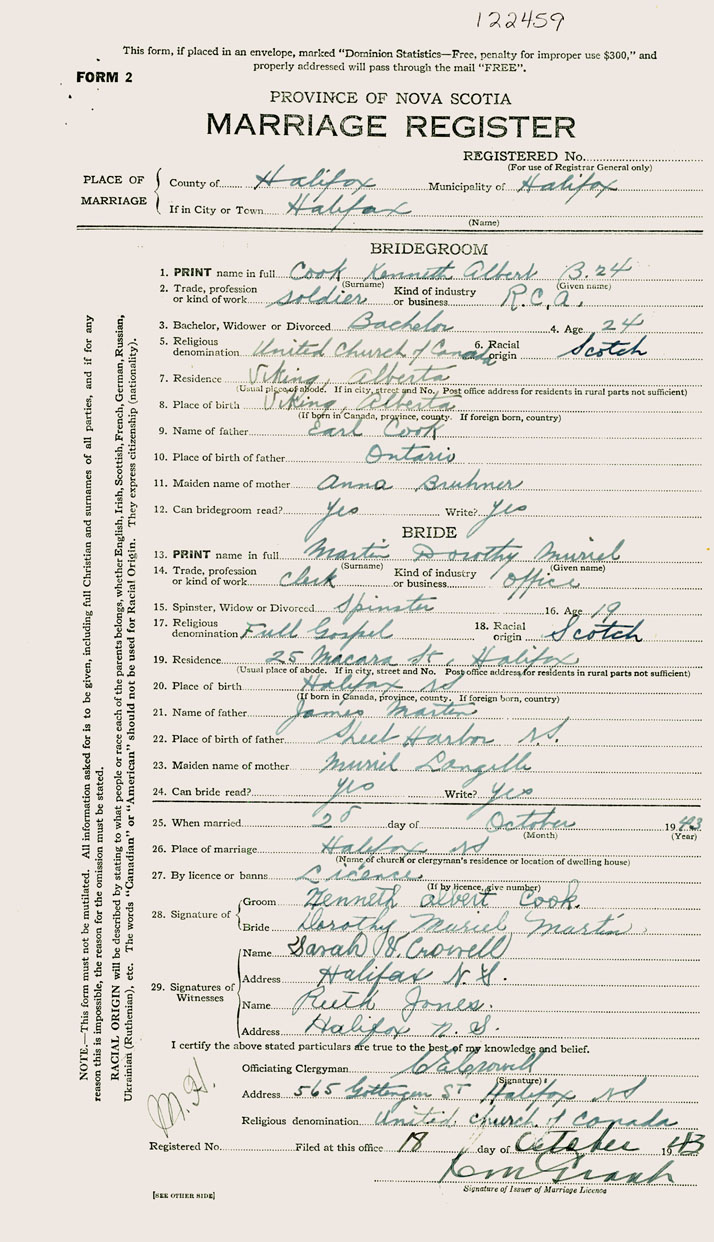 122459
This form, if placed in an envelope, marked "Dominion Statistics—Free, penalty for improper use $300," and
properly addressed will pass through the mail "FREE".
FORM 2
PROVINCE OF NOVA SCOTIA
MARRIAGE REGISTER
REGISTERED No.
(For use of Registrar General only)
PLACE OF MARRIAGE
County of Halifax Municipality of Halifax
If in City or Town Halifax
(Name)
BRIDEGROOM
1. PRINT name in full Cook Kenneth Albert B.24
(Surname) (Given name)
2. Trade, profession or kind of work soldier Kind of industry or business R.C.A.
3. Bachelor, Widower or Divorced Bachelor 4. Age 24
5. Religious denomination United Church of Canada 6. Racial origin Scotch
7. Residence Viking, Alberta
(Usual place of abode. If in city, street and No. Post office address for residents in rural parts not sufficient)
8. Place of birth Viking, Alberta
(If born in Canada, province, county. If foreign born, country)
9. Name of father Earl Cook
10. Place of birth of father Ontario
11. Maiden name of mother Anna Bruhner
12. Can bridegroom read? Yes Write? Yes
BRIDE
13. PRINT name in full Martin Dorothy Muriel
(Surname) (Given name)
14. Trade, profession or kind of work clerk Kind of industry or business office
15. Spinster, Widow or Divorced Spinster 16. Age 19
17. Religious denomination Full Gospel 18. Racial origin Scotch
19. Residence 25 Macara St, Halifax
(Usual place of abode. If in city, street and No. Post office address for residents in rural parts not sufficient)
20. Place of birth Halifax NS
(If born in Canada, province, county. If foreign born, country)
21. Name of father James Martin
22. Place of birth of father Sheet Harbor N.S.
23. Maiden name of mother Muriel Langille
24. Can bride read? Yes Write? Yes
25. When married 28 day of October 1943
(Month) (Year)
26. Place of marriage Halifax NS
(Name of church or clergyman's residence or location of dwelling house)
27. By licence or banns Licence
(If by licence, give number)
28. Signature of
Groom Kenneth Albert Cook.
Bride Dorothy Muriel Martin.
29. Signatures of Witnesses
Name Sarah V. Crowell
Address Halifax N.S.
Name Ruth Jones.
Address Halifax N.S.
I certify the above stated particulars are true to the best of my knowledge and belief.
Officiating Clergyman Crowell
(Signature)
Address 565 Gottengen ST Halifax NS
Religious denomination United church of Canada
Registered No. Filed at this office 18 day of October 1943
Signature of Issuer of Marriage Licence
[SEE OTHER SIDE]
NOTE.—This form must not be mutilated. All information asked for is to be given, including full Christian and surnames of all parties, and if for any
reason this is impossible, the reason for the omission must be stated.
RACIAL ORIGIN will be described by stating to what people or race each of the parents belongs, whether English, Irish, Scottish, French, German, Russian,
Ukrainian (Ruthenian), etc. The words "Canadian" or "American" should not be used for Racial Origin. They express citizenship (nationality).
M.H.